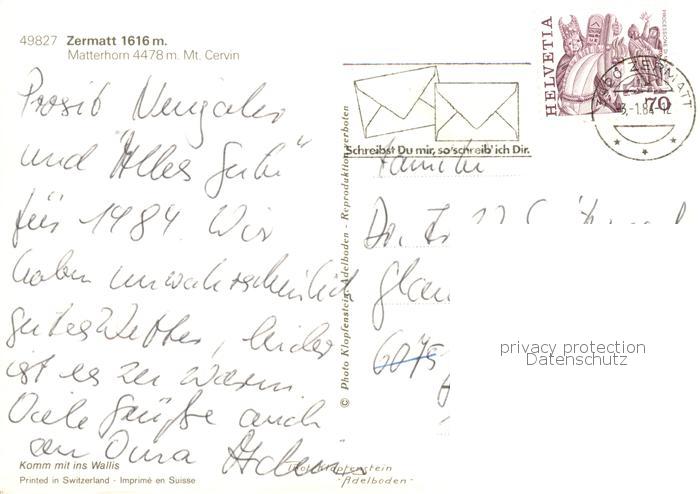 49827 Zermatt 1616 m.
Matterhorn 4478 m. Mt. Cervin
Prosit Neujahr
und "Alles Gute"
für 1984. Wir
haben unwahrscheinlich
gutes Wetter, leider
ist es zu warm
Viele Grüße auch
an Oma
Komm mit ins Wallis
Printed in Switzerland - Imprimé en Suisse
© Photo Klopfenstein, Adelboden - Reproduktion verboten
Schreibst Du mir, so schreib' ich Dir.
HELVETIA
70
ZERMATT
-1.84
Familie
Dr.
6075
privacy protection
Datenschutz
Klopfenstein
-Adelboden-